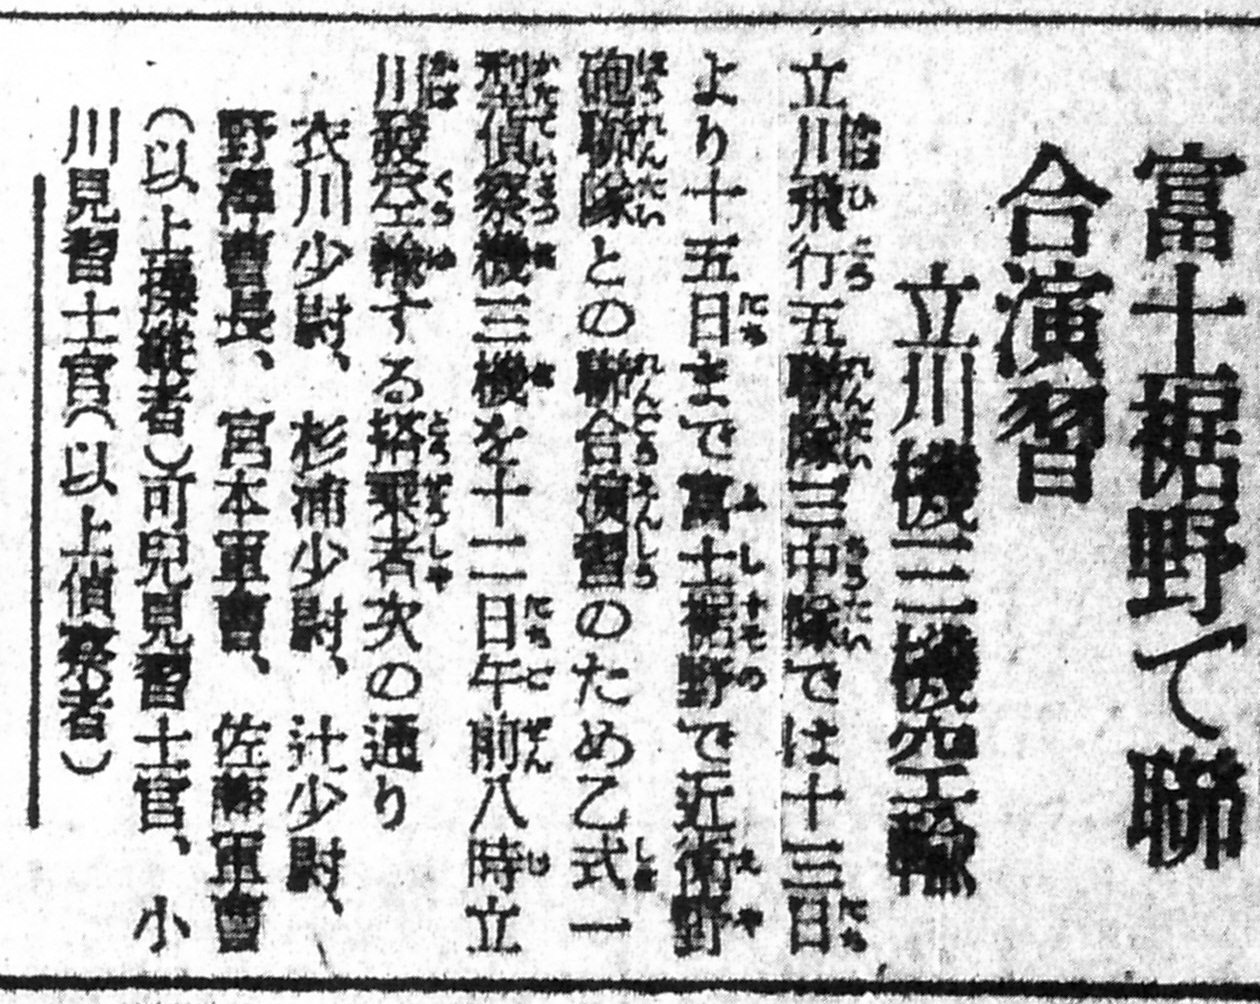 富士裾野て聯
合演習
立川機三機空輸
立川飛行五聯隊三中隊では十三日
より十五日まで富士裾野で近衞野
砲聯隊との聯合演習のため乙式一
型偵察機三機を十二日午前八時立
川發空輸する搭乘者次の通り
衣川少尉、杉浦少尉、辻少尉、
野澤曹長、宮本軍曹、佐藤軍曹
（以上操縱者）可兒見習士官、小
川見習士官（以上偵察者）